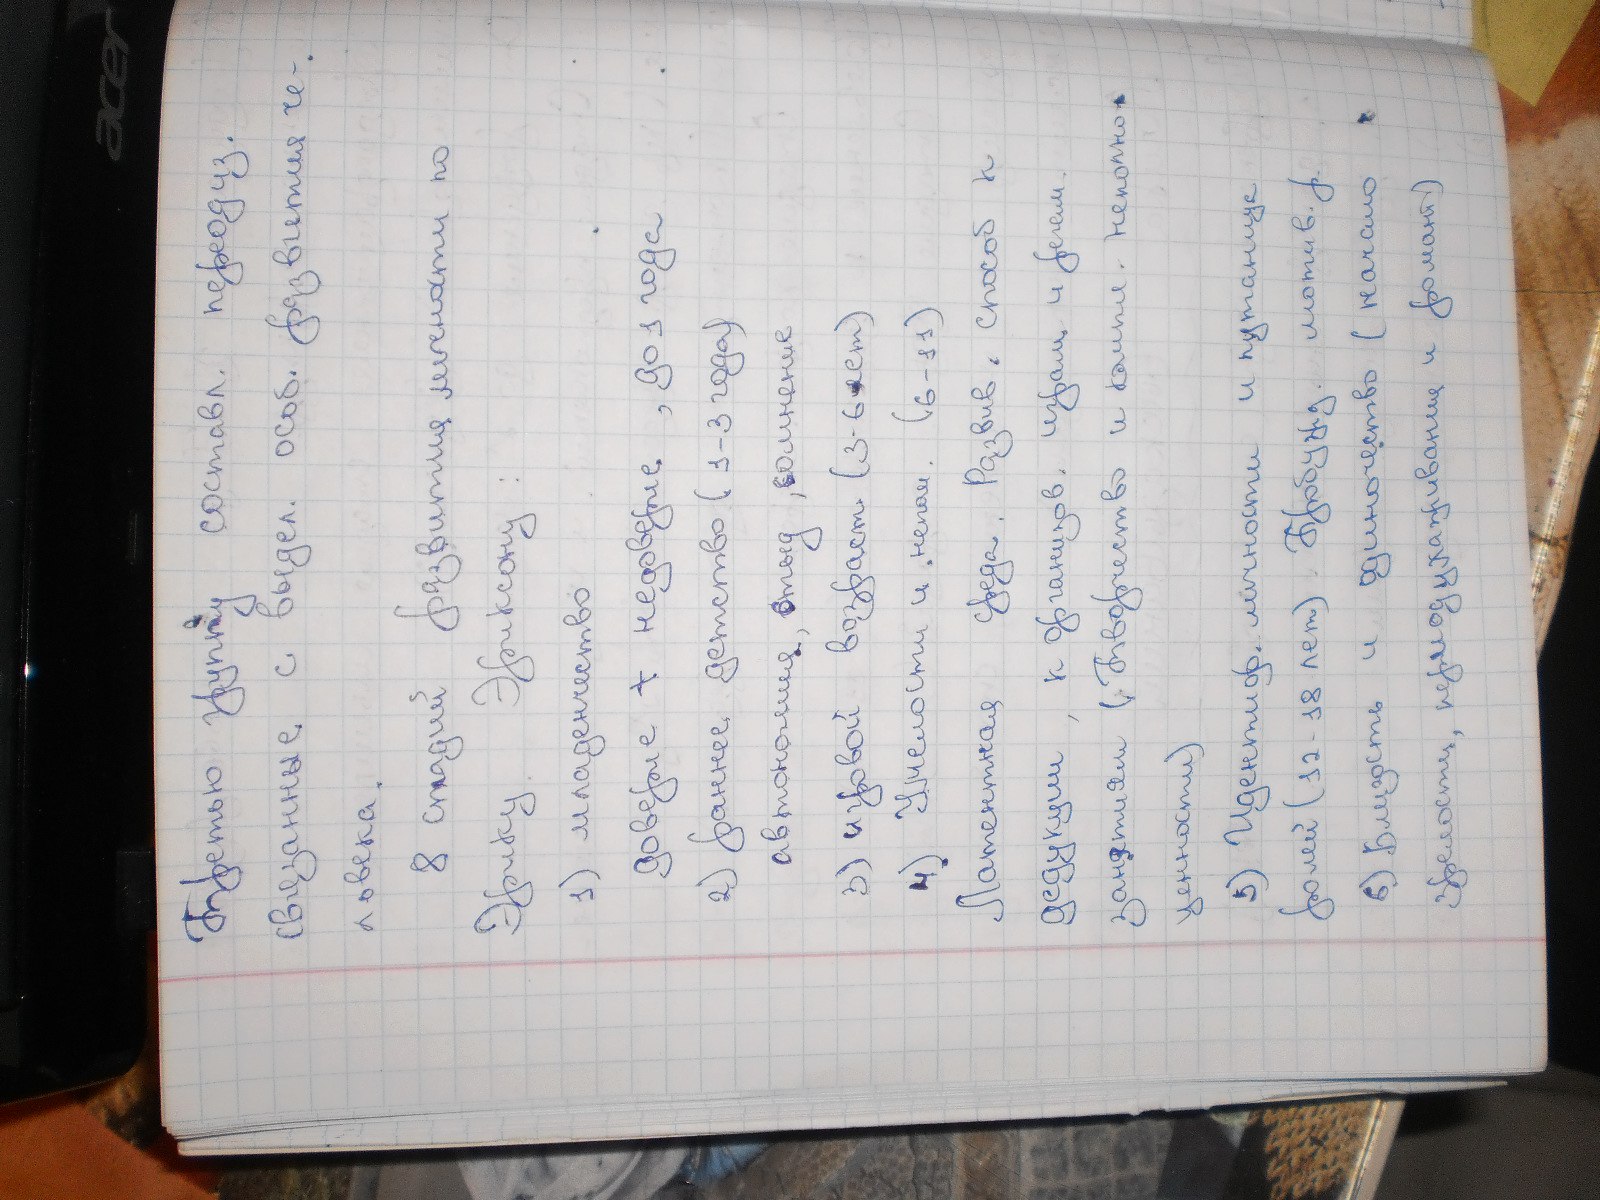 Третью группу составл. переодуз.
связанные с выдел. особ. развития че-
ловека.
8 стадий развития личности по
Эрику Эриксону:
1) младенчество
доверие + недоверие, до 1 года
2) раннее детство (1-3 года)
автономия, стыд, сомнение
3) игровой возраст (3-6 лет)
4) Умелости и непол. (6-11)
Латентная среда. Развив. способ к
дедукции, к организов. играм и регл.
занятиям (Творчество и компл. неполно.
ценности)
5) Идентифр. личности и путаница
ролей (12-18 лет). Пробужд. мотив. р.
6) Близость и одиночество (начало
зрелости, период ухаживания и романт)
acer